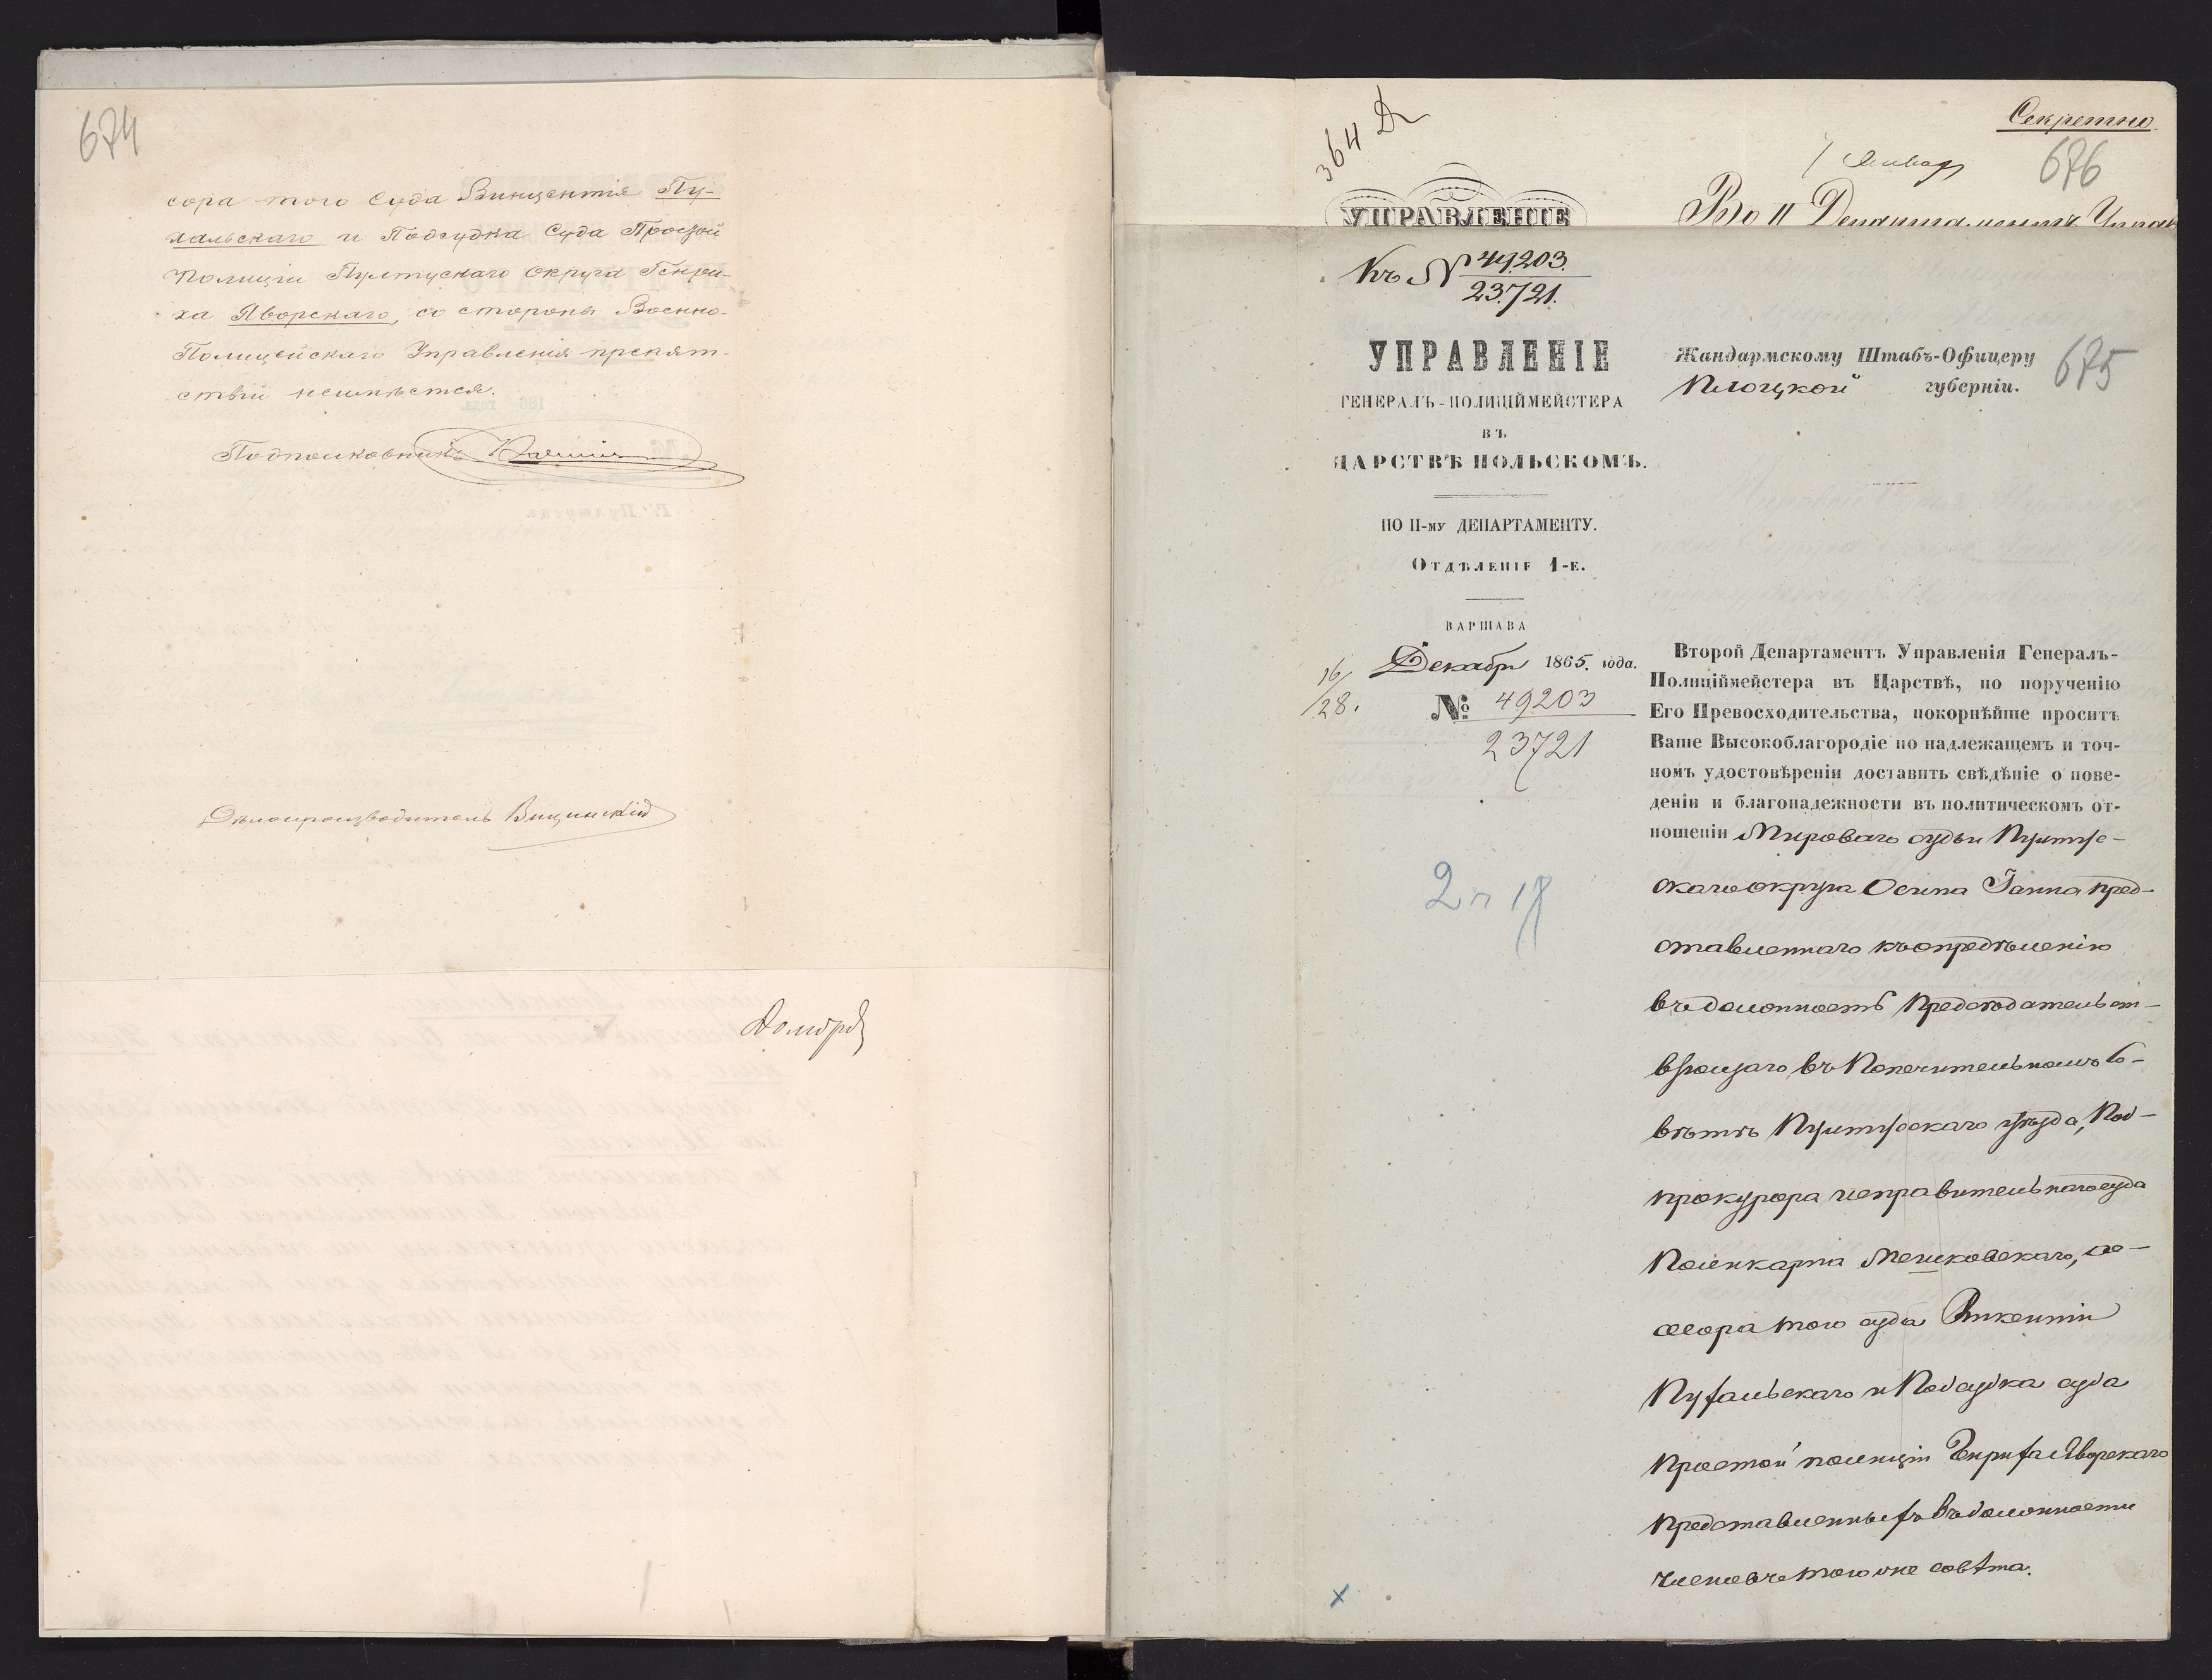 674
сора того Суда Винцентія Пу-
хальскаго и Подсудка Суда Простой
Полиціи Пултускаго округа Генри-
ха Яворскаго, со стороны Военно-
Полицейскаго Управленія препят-
ствій неимѣется.
Подполковникъ
Дѣлопроизводитель Вицинскій
364
Секретно.
7 Январ
676
УПРАВЛЕНІЕ
Во II Департаментъ Управ
Къ № 49203.
23721.
УПРАВЛЕНІЕ
ГЕНЕРАЛЪ-ПОЛИЦІЙМЕЙСТЕРА
ВЪ
ЦАРСТВѢ ПОЛЬСКОМЪ.
ПО II-му ДЕПАРТАМЕНТУ.
Отдѣленіе 1-е.
ВАРШАВА
16/28. Декабря 1865. года.
№ 49203
23721
Жандармскому Штабъ-Офицеру
Плоцкой губерніи.
675
Второй Департаментъ Управленія Генералъ-
Полиціймейстера въ Царствѣ, по порученію
Его Превосходительства, покорнѣйше проситъ
Ваше Высокоблагородіе по надлежащемъ и точ-
номъ удостовѣреніи доставить свѣдѣніе о пове-
деніи и благонадежности въ политическомъ от-
ношеніи Мироваго судьи Пултус-
скаго округа Осипа Іанна пред-
ставленнаго къ опредѣленію
въ должность Предсѣдательст-
вующаго въ Попечительномъ Со-
вѣтѣ Пултусскаго уѣзда, Под-
прокурора исправительнаго суда
Поликарпа Мешковскаго, ас-
сесора того суда Викентія
Пухальскаго и Подсудка суда
Простой полиціи Генриха Яворскаго
представленныхъ въ должности
членовъ того же совѣта.